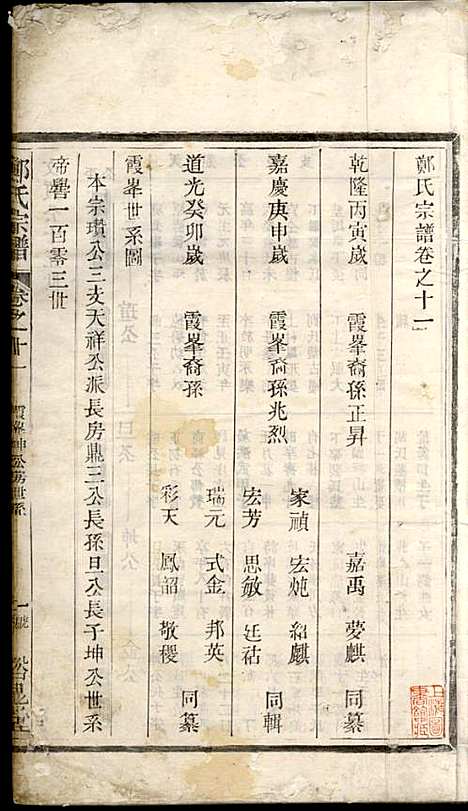 鄭氏宗譜卷之十一
乾隆丙寅歲 霞峯裔孫正昇 嘉禹 夢麒 同纂
家禎 宏炖 紹麒
嘉慶庚申歲 霞峯裔孫兆烈 同輯
宏芳 思敏 廷祜
瑞元 式金 邦英
道光癸卯歲 霞峯裔孫 同纂
彩天 鳳韶 敬稷
霞峯世系圖
本宗瓚公三支天祥公派長房鼎三公長孫旦公長子坤公世系
帝嚳一百零三世
鄭氏宗譜 卷之十一 霞峯坤公房世系 一號